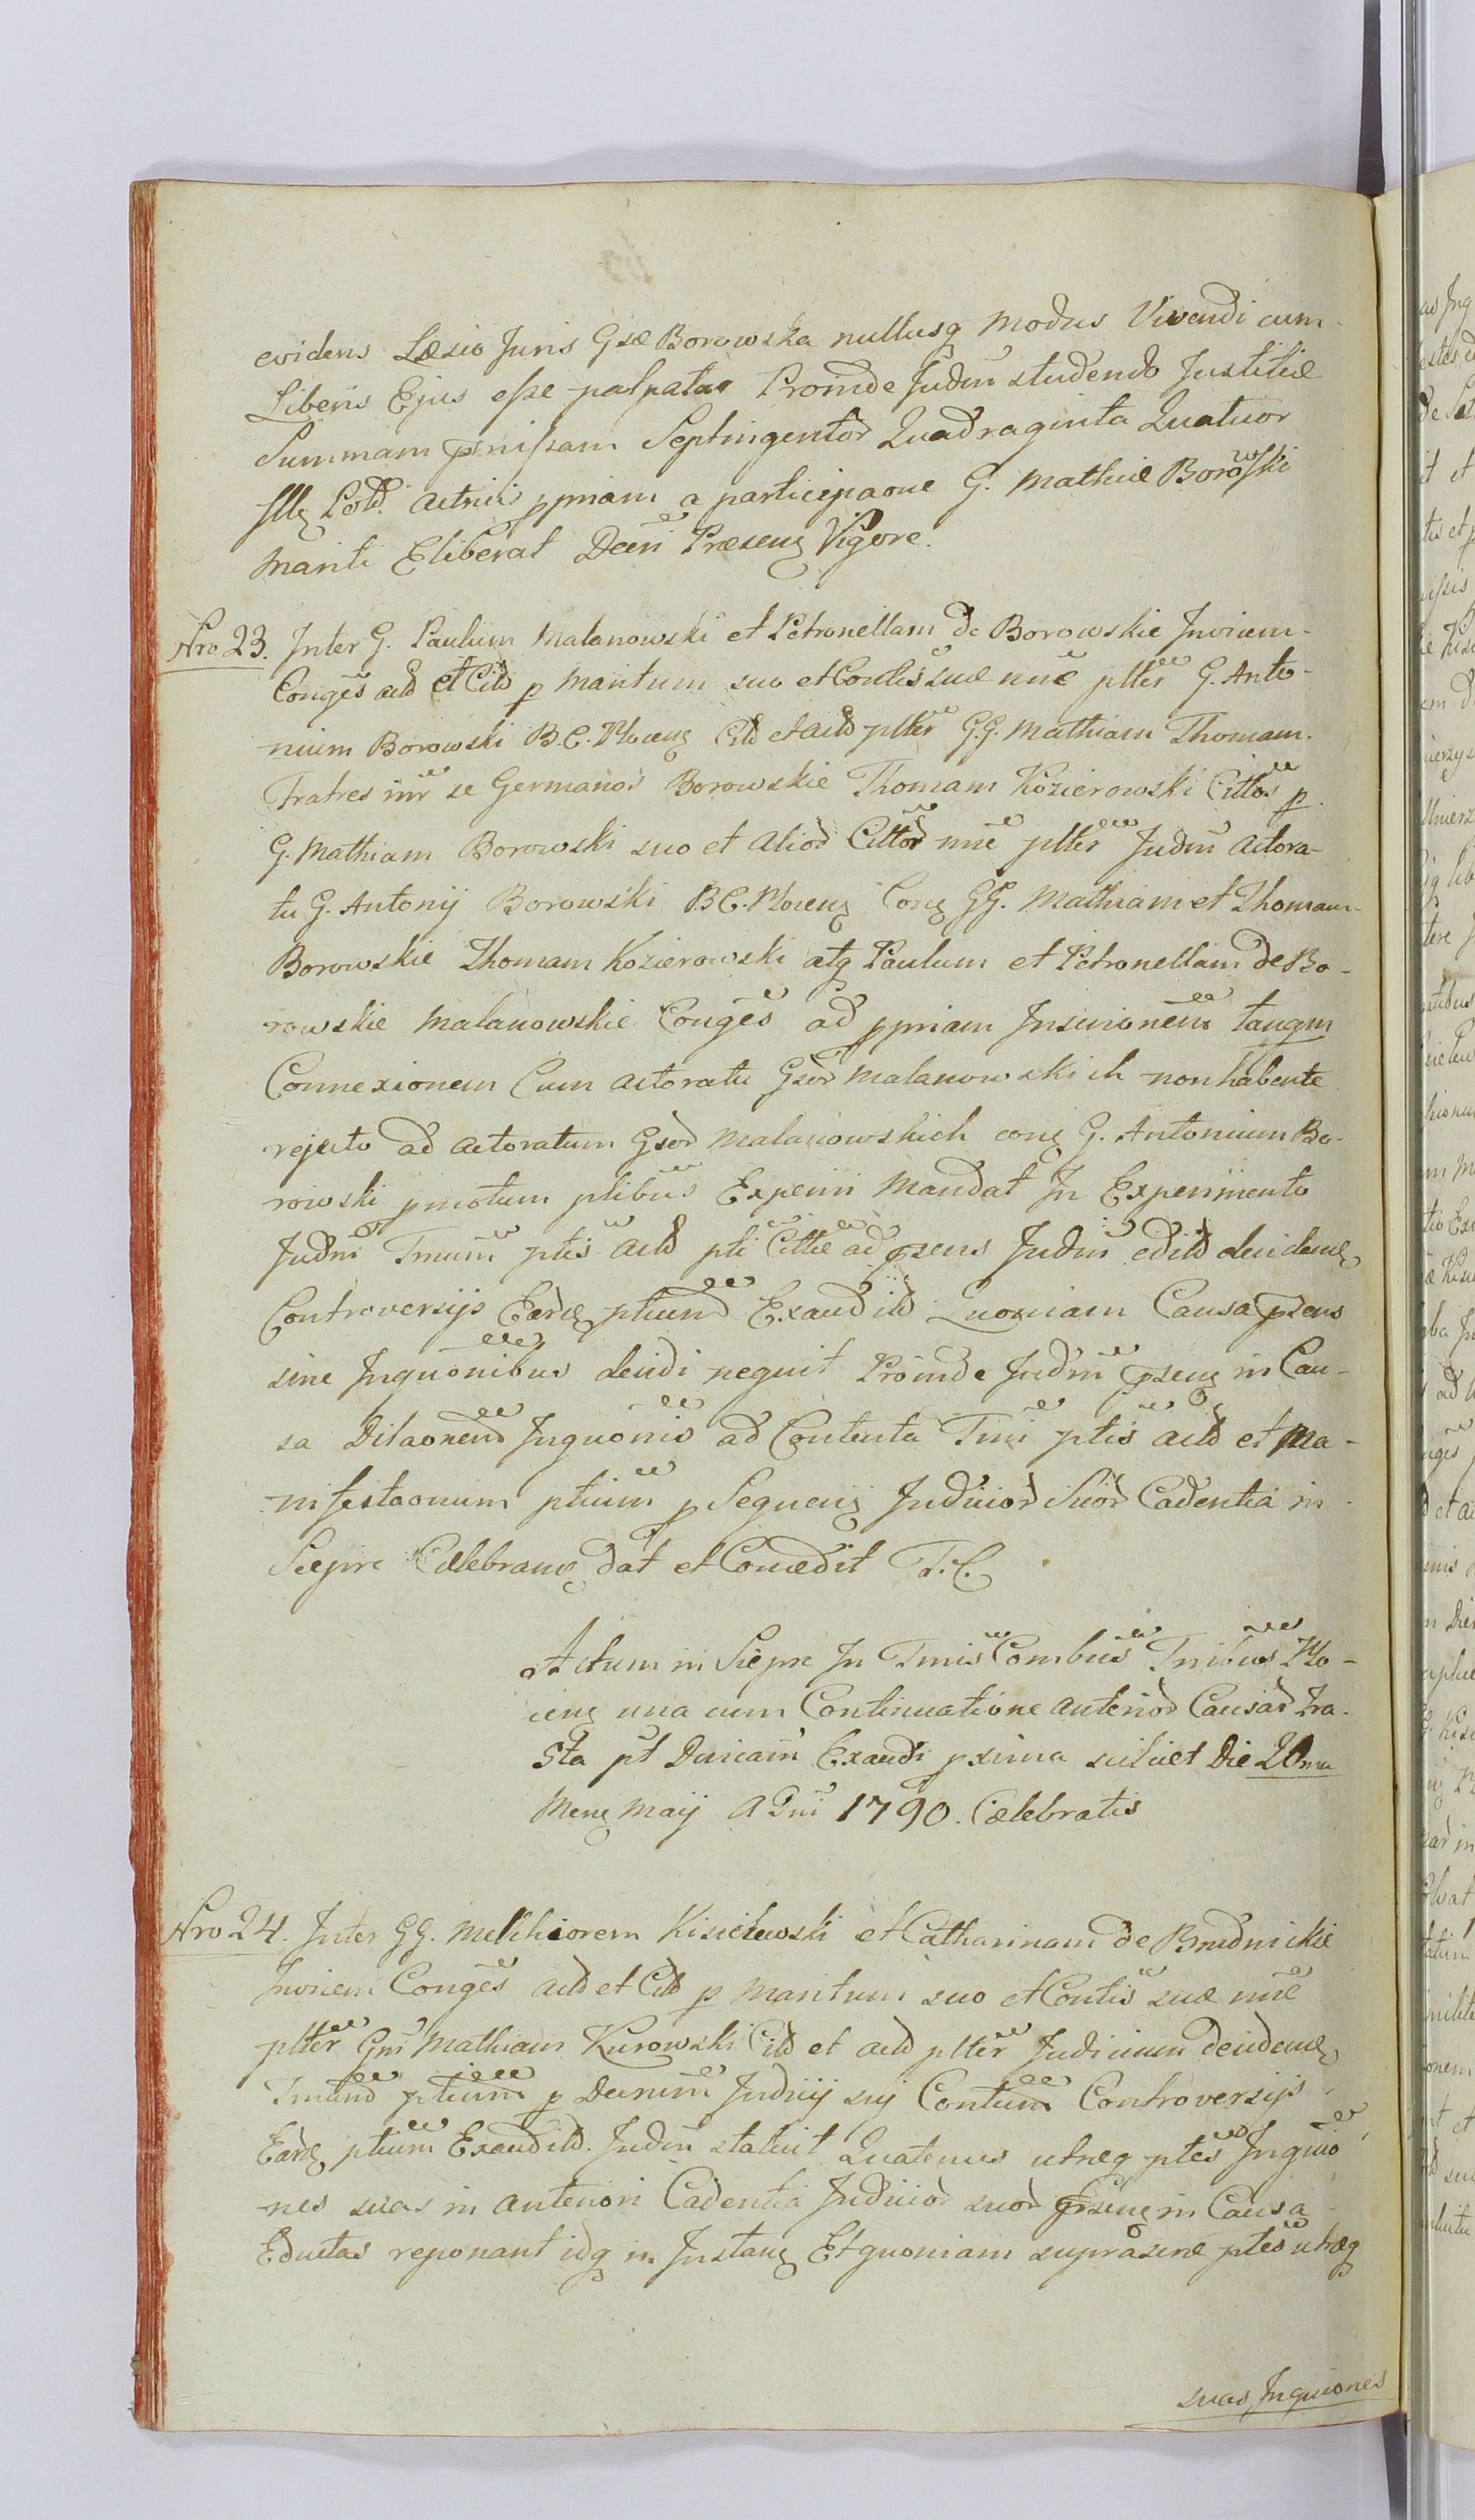 evidens Læsio Juris Gsæ Borowska nullusq Modus Vivendi cum
Liberis Ejus esse palpatur Proinde Judm studendo Justitiæ
Summam pmissam Septingentor Quadraginta Quatuor
fllg Pold. actricis ppriam a participaone G. Mathiæ Borowski
Mariti Eliberat Decri Præseng Vigore.
Nro 23. Inter G. Paulum Malanowski et Petronellam de Borowskie Invicem
Conges actd et Citd p Maritum suo et Contis suæ nne plter G. Anto-
nium Borowski B.C.Ploceng Citd et actd plter G.G. Mathiam Thomam
Fratres inr se Germanos Borowskie Thomam Kozierowski Cittos p
G. Mathiam Borowski suo et aliod Cittor nne plter Judm actora-
tu G. Antonij Borowski B.C. Ploceng Cong GG. Mathiam et Thomam
Borowskie Thomam Kozierowski atq Paulum et Petronellam de Bo-
rowskie Malanowskie Conges ad ppriam Inscrionem tanqm
Connexionem Cum actoratu Gsor Malanowskich non habente
rejecto ad actoratum Gsod Malanowskich cong G. Antonium Bo-
rowski pmotum ptibus Experiri Mandat In Experimento
Judm Tmum ptis actd pti Cittæ ad psens Judm editd decidend
Controversijs Eardg ptiumd Exauditd Quoniam Causa psens
sine Inquonibus decidi nequit Proinde Judm pseng in Cau-
sa Dilaonemd Inquonis ad Contenta Tmi ptis actd et Ma-
nifestaonum ptium p Sequeng Judicior Suor Cadentia in
Sierpc Celebrand dat et Concedit T.C.
Actum in Sierpc In Tmis Combus Tribus Plo-
ceng una cum Continuatione anterior Causar Tra-
cta pt Duicam Exaudi pxima scilicet Die 20ma
Meng Maij A Dni 1790. Cælebratis
Nro 24. Inter GG. Melchiorem Kisielewski et Catharinam de Brudnickie
Invicem Conges actd et Citd p Maritum suo et Contis suæ nne
plter Gm Mathiam Kurowski Citd et actd plter Judicium decidend
Tmumd ptium p Decrum Judicij sui Contum Controversijs
Eardg ptium Exauditd. Judm statuit Quatenus utræq ptes Inquio-
nes suas in anteriori Cadentia Judicior suor pseng in Causa
Eductas reponant idq in Instang Et quoniam supraseræ ptes utræq
suas Inquiones